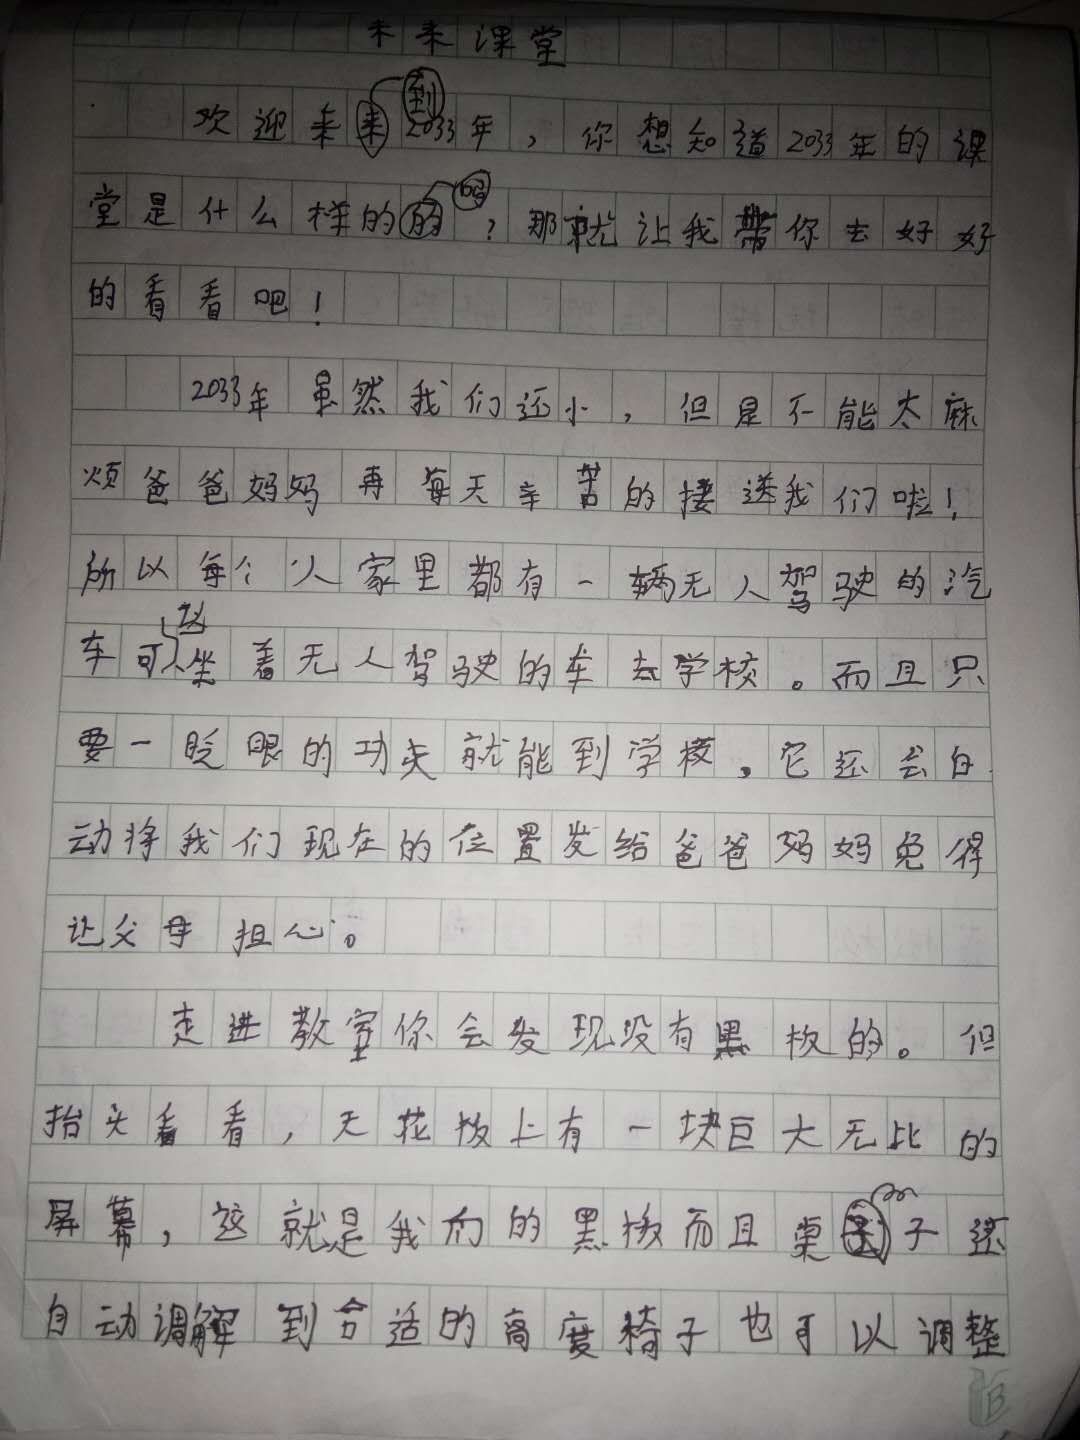 未来课堂
欢迎来到2033年，你想知道2033年的课
堂是什么样的吗？那就让我带你去好好
的看看吧！
2033年虽然我们还小，但是不能太麻
烦爸爸妈妈再每天辛苦的接送我们啦！
所以每个人家里都有一辆无人驾驶的汽
车可以坐着无人驾驶的车去学校。而且只
要一眨眼的功夫就能到学校，它还会自
动将我们现在的位置发给爸爸妈妈免得
让父母担心。
走进教室你会发现没有黑板的。但
抬头看看，天花板上有一块巨大无比的
屏幕，这就是我们的黑板而且桌子还
自动调解到合适的高度椅子也可以调整